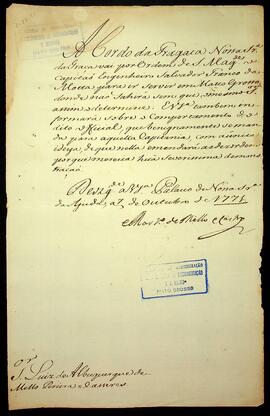 A Bordo da Fragata Nossa Sr.ª
da Graça vai por Ordem de S. Mag.de o
Capitão Engenheiro Salvador Franco da
Motta para ir Servir em Matto Grosso
donde não sahirá sem que o mesmo S.r
assim o determine. E V. S.ª tambem in-
formará sobre o Comportamento do
dito Official, que benignamente se man-
da para aquella Capitania, com a unica
ideya, de que nella emendará as dezordens
porque merecia huã Severissima demons-
tração.
Deos g.de a V. S.ª Palacio de Nossa Sr.ª
da Ajuda, a 7 de Outubro de 1771
Mart.º de Mello e Castro
MATO GROSSO
S.r Luiz de Albuquerque de
Mello Pereira e Caceres